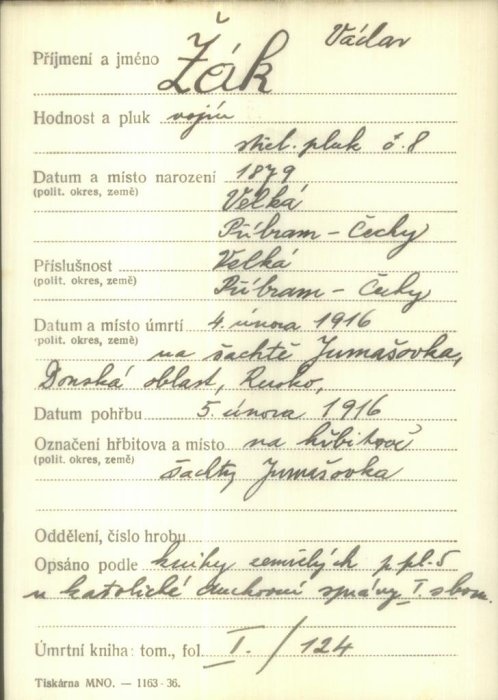 Příjmení a jméno Žák Václav
Hodnost a pluk vojín
střel. pluk č. 8
Datum a místo narození 1879
(polit. okres, země) Velká
Příbram - Čechy
Příslušnost Velká
(polit. okres, země) Příbram - Čechy
Datum a místo úmrtí 4. února 1916
(polit. okres, země) na šachtě Jumašovka,
Donská oblast, Rusko,
Datum pohřbu 5. února 1916
Označení hřbitova a místo na hřbitově
(polit. okres, země) šachty Jumašovka
Oddělení, číslo hrobu
Opsáno podle knihy zemřelých p. pl. 5
u katolické duchovní správy I. sbor.
Úmrtní kniha: tom., fol. I. / 124
Tiskárna MNO. — 1163-36.